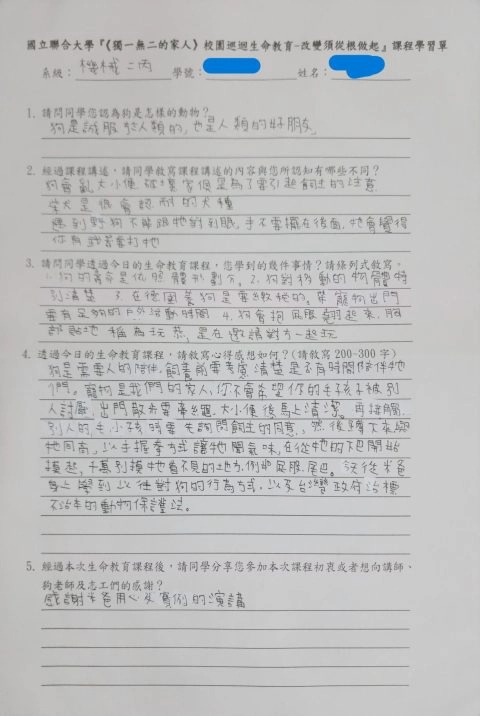 國立聯合大學『《獨一無二的家人》校園巡迴生命教育-改變須從根做起』課程學習單
系級：機械二丙 學號： 姓名：
1. 請問同學您認為狗是怎樣的動物？
狗是誠服於人類的，也是人類的好朋友。
2. 經過課程講述，請同學敘寫課程講述的內容與您所認知有哪些不同？
狗會亂大小便 破壞家俱是為了要引起飼主的注意
柴犬是很會認耐的犬種
遇到野狗不能跟牠對到眼，手不要擺在後面，牠會覺得
你拿武器要打牠
3. 請問同學透過今日的生命教育課程，您學到的幾件事情？請條列式敘寫。
1. 狗的壽命是依照體形劃分。2. 狗對移動的物體特
別清楚 3. 在德國養狗是要繳稅的。帶寵物出門
要有足夠的戶外活動時間 4. 狗會拘屁股翹起來，胸
部貼地 稱為玩恭，是在邀請對方一起玩
4. 透過今日的生命教育課程，請敘寫心得感想如何？(請敘寫 200-300 字)
狗是需要人的陪伴，飼養前要考慮清楚是不有時間陪伴牠
們。寵物是我們的家人，你不會希望你的毛孩子被別
人討厭，出門散步要牽繩，大小便後馬上清潔。再接觸
別人的毛小孩時要先詢問飼主的同意，然後蹲下來與
牠同高，以手握拳方式讓牠聞氣味，在從牠的下巴開始
摸起，千萬別摸牠看不見的地方，例如屁股、尾巴。最後米爸
身上學到以往對狗的行為方式，以及台灣政府治標
不治本的動物保護法。
5. 經過本次生命教育課程後，請同學分享您參加本次課程初衷或者想向講師、
狗老師及志工們的感謝？
感謝米爸用心及實例的演講